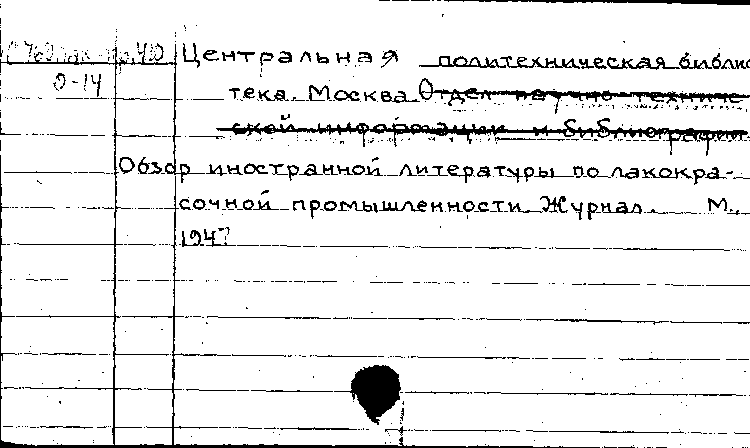 Центральная политехническая библио
О-14
тека. Москва. Отдел научно-техниче-
ской информации и библиографии
Обзор иностранной литературы по лакокра-
сочной промышленности. Журнал. М.,
194?